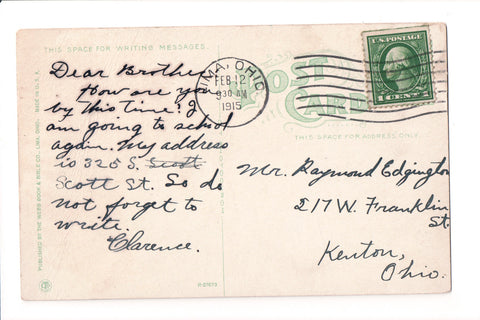 THIS SPACE FOR WRITING MESSAGES.
Dear Brother
How are you
by this time? I
am going to school
again. My address
is 325 S. Scott
Scott St. So do
not forget to
write.
Clarence.
LIMA, OHIO.
FEB 12
9 30 AM
1915
POST
CARD
U.S. POSTAGE
1 CENT 1
THIS SPACE FOR ADDRESS ONLY.
Mr. Raymond Edgington
217 W. Franklin
St.
Kenton,
Ohio.
PUBLISHED BY THE WEBB BOOK & BIBLE CO., LIMA, OHIO. MADE IN U. S. A.